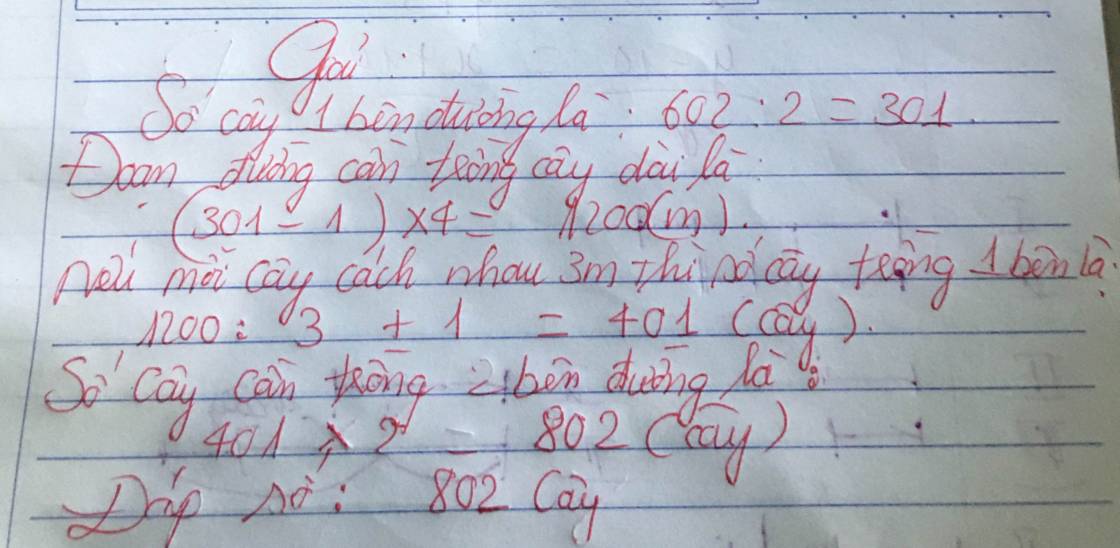 Giải:
Số cây 1 bên đường là: 602 : 2 = 301.
Đoạn đường cần trồng cây dài là:
(301 - 1) x 4 = 1200(m).
Nếu mỗi cây cách nhau 3m thì số cây trồng 1 bên là:
1200 : 3 + 1 = 401 (cây).
Số cây cần trồng 2 bên đường là:
401 x 2 = 802 (cây)
Đáp số: 802 Cây